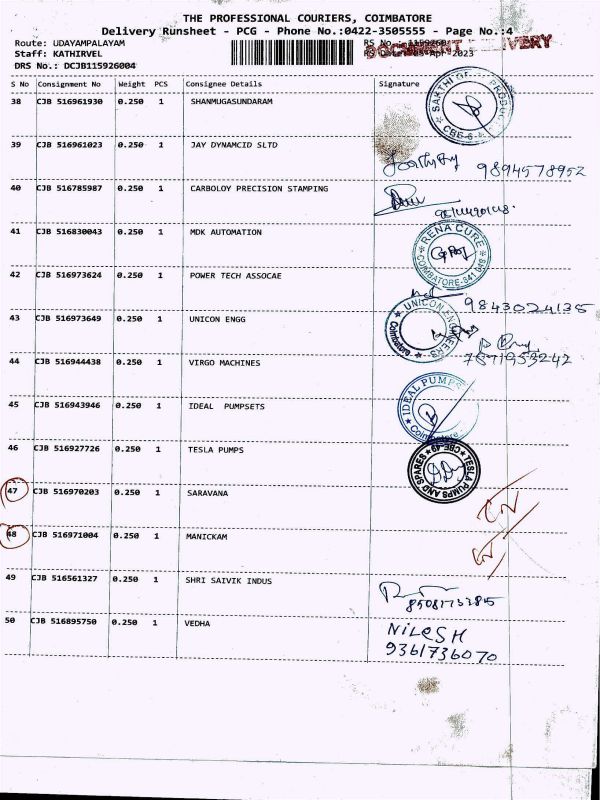 THE PROFESSIONAL COURIERS, COIMBATORE
Delivery Runsheet - PCG - Phone No.:0422-3505555 - Page No.:4
Route: UDAYAMPALAYAM
Staff: KATHIRVEL
DRS No.: DCJB115926004
S No Consignment No Weight PCS Consignee Details Signature
38 CJB 516961930 0.250 1 SHANMUGASUNDARAM
SAKTHI
CBE-6
39 CJB 516961023 0.250 1 JAY DYNAMCID SLTD
9894578952
40 CJB 516785987 0.250 1 CARBOLOY PRECISION STAMPING
41 CJB 516830043 0.250 1 MDK AUTOMATION
RENA CURE
COIMBATORE-641
42 CJB 516973624 0.250 1 POWER TECH ASSOCAE
9843024135
43 CJB 516973649 0.250 1 UNICON ENGG
UNICON ENGINEERS
Coimbatore
7871953242
44 CJB 516944438 0.250 1 VIRGO MACHINES
45 CJB 516943946 0.250 1 IDEAL PUMPSETS
IDEAL PUMPS
Coimbatore
46 CJB 516927726 0.250 1 TESLA PUMPS
TESLA PUMPS AND SPARES
CBE-49
47 CJB 516970203 0.250 1 SARAVANA
48 CJB 516971004 0.250 1 MANICKAM
49 CJB 516561327 0.250 1 SHRI SAIVIK INDUS
8508773385
50 CJB 516895750 0.250 1 VEDHA
NiLeSH
9361736070